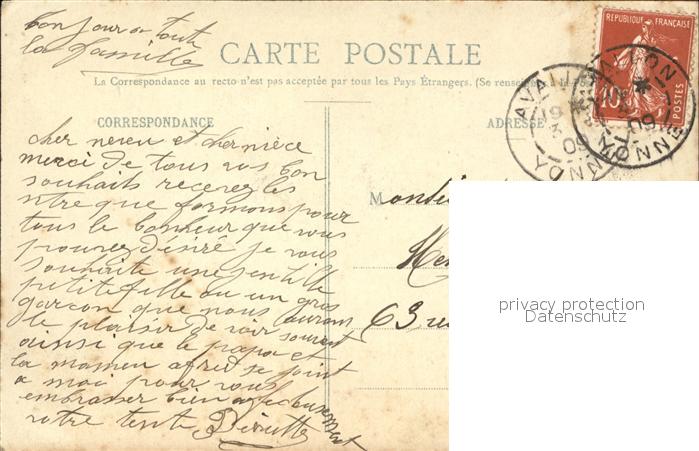 bonjour a toute
la famille
CARTE POSTALE
La Correspondance au recto n'est pas acceptée par tous les Pays Étrangers. (Se renseigner à la
CORRESPONDANCE
ADRESSE
REPUBLIQUE FRANÇAISE
10
POSTES
AVALLON
YONNE
19
09
cher neveu et chernièce
merci de tous vos bon
souhaits recevez les
nôtre que formons pour
tous le bonheur que vous
pouvez désiré je vous
souhaite une gentille
petite fille ou un gros
garçon que nous aurons
le plaisir de voir souvent
ainsi que le papa et
la maman afred se joint
a moi pour vous
embrasser bien affectueusement
votre tente
63 rue
privacy protection
Datenschutz